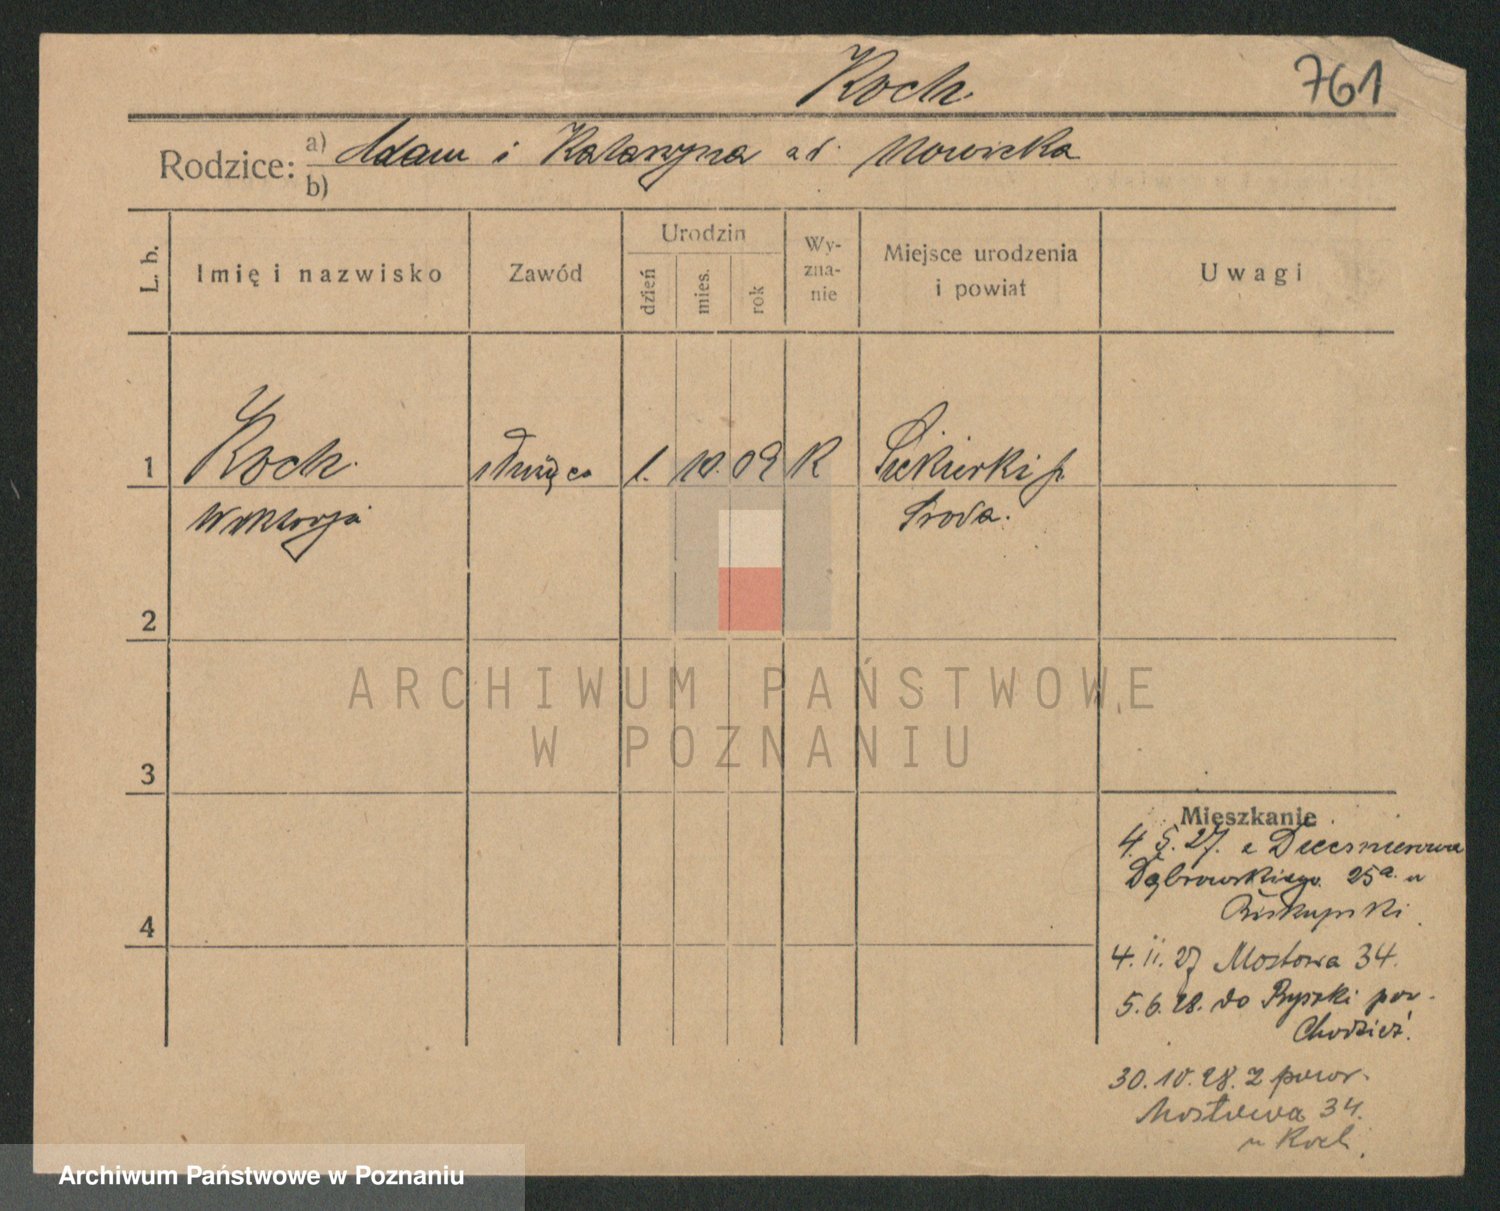 Koch.
761
Rodzice: a) Adam i Katarzyna od. Nowicka
b)
L. b.
Imię i nazwisko
Zawód
Urodzin
dzień
mies.
rok
Wy-
zna-
nie
Miejsce urodzenia
i powiat
Uwagi
1 Koch. służąca 1. 10. 09 K Siekierki p.
Wiktorja Środa.
2
ARCHIWUM PAŃSTWOWE
W POZNANIU
3
Mieszkanie
4. 5. 27. z
Dąbrowskiego 25a. u
Biskupski
4
4. 11. 27 Mostowa 34.
5. 6. 28. do pow.
Chodzież.
30. 10. 28. z powr.
Mostowa 34.
u Koch.
Archiwum Państwowe w Poznaniu